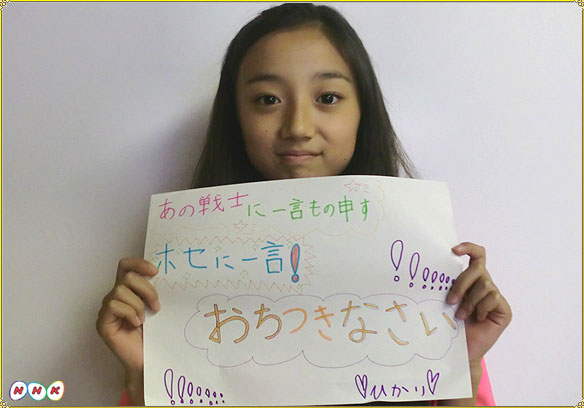 あの戦士に一言もの申す
ホセに一言!
!!!!!!!
おちつきなさい
!!!!!!!!
♡ひかり♡
NHK